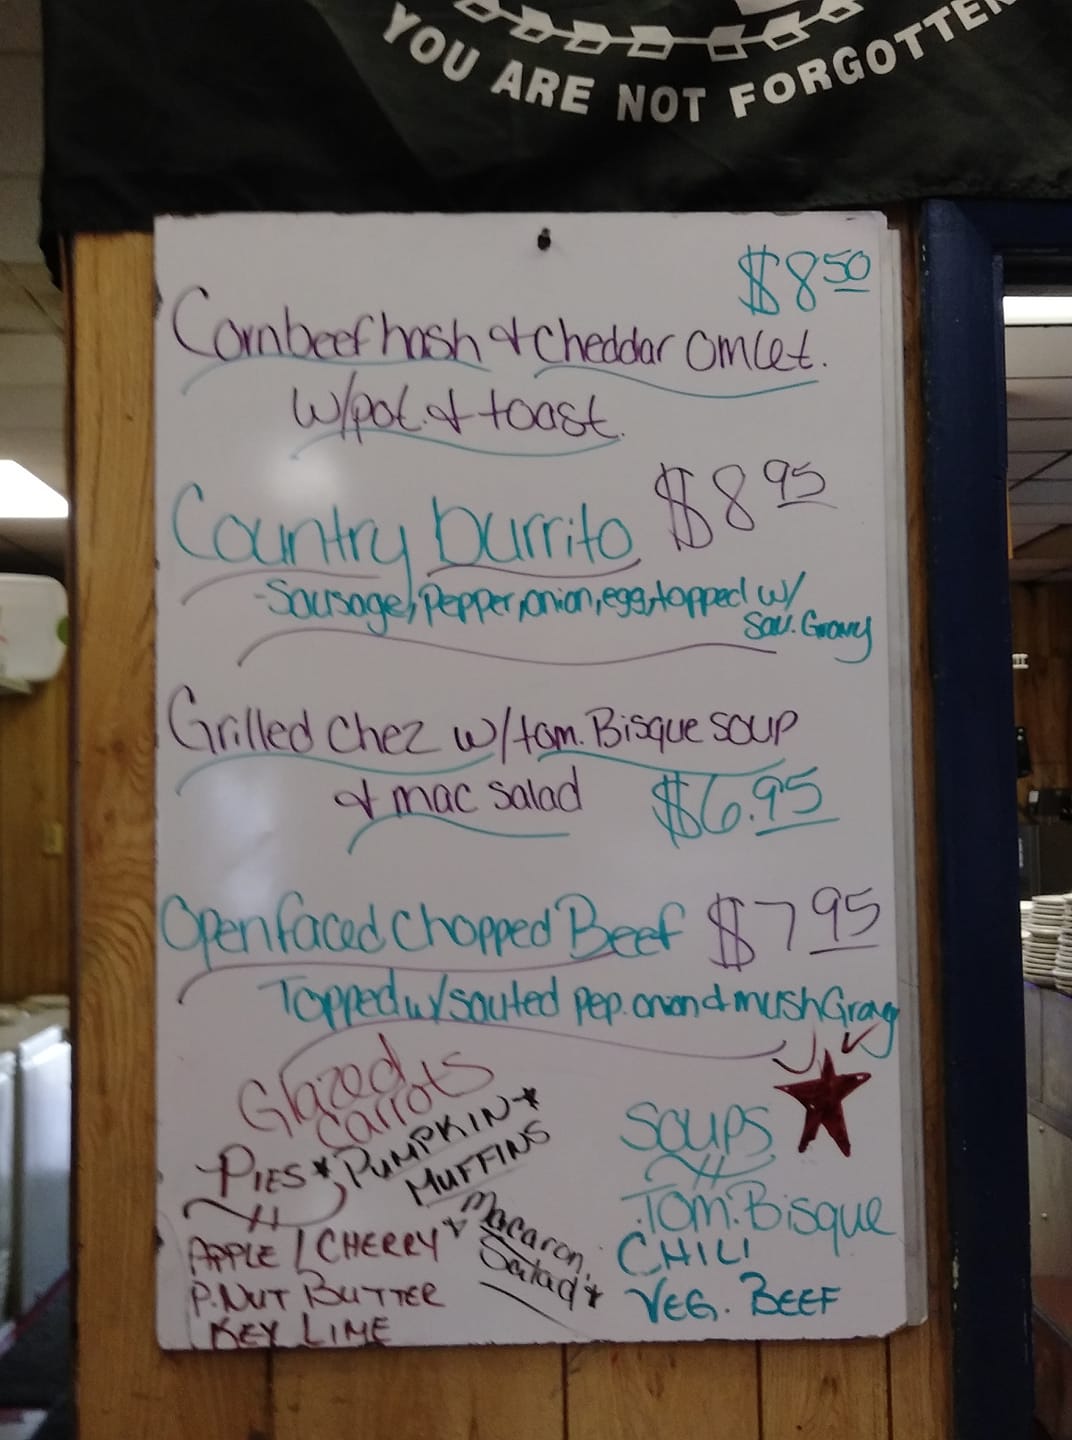 YOU ARE NOT FORGOTTEN
$8.50
Cornbeef hash & cheddar omlet.
w/pot. & toast.
Country burrito $8.95
-Sausage, pepper, onion, egg, topped w/
Sau. Gravy
Grilled chez w/tom. Bisque soup
& mac salad $6.95
Open faced Chopped Beef $7.95
Topped w/sauted pep. onon & mush Gravy
Glazed
carrots
PIES * PUMPKIN *
MUFFINS
APPLE / CHERRY
P.NUT BUTTER
KEY LIME
* Macaroni
Salad *
SOUPS
TOM. Bisque
CHILI
VEG. BEEF